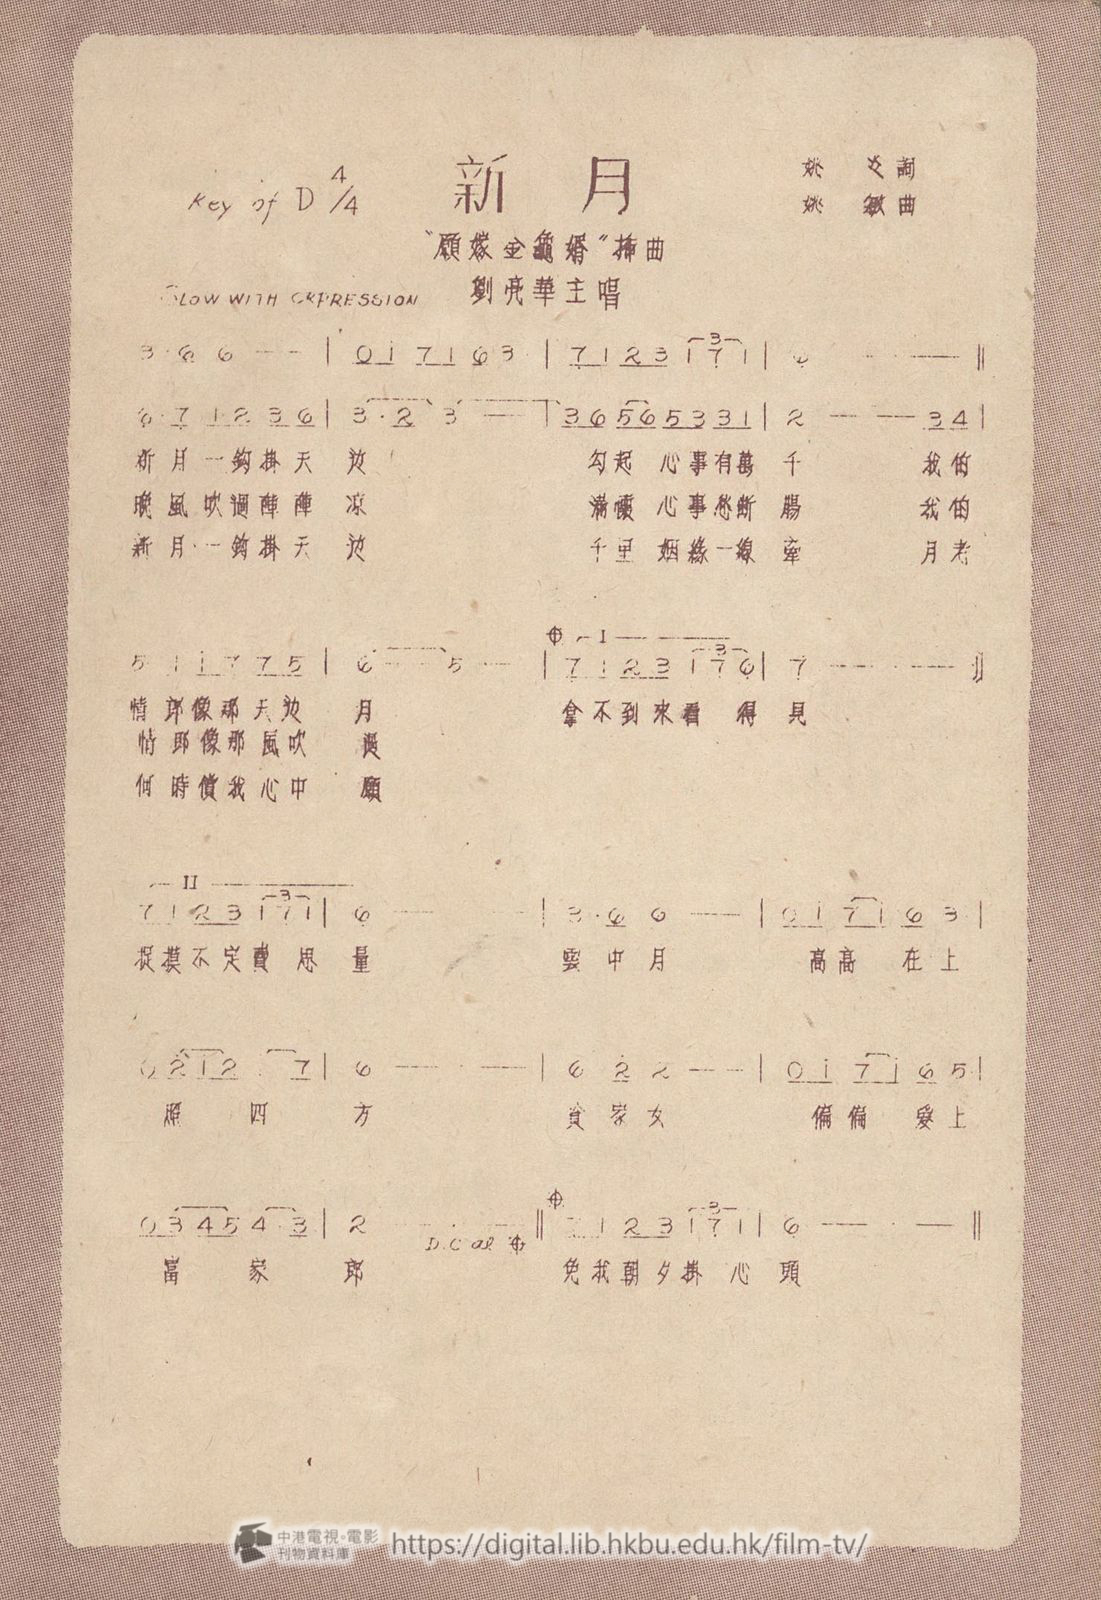 新月
Key of D 4/4
姚 文詞
姚 敏曲
"願嫁金龜婿"插曲
劉亮華主唱
SLOW WITH EXPRESSION
3·6 6 - - | 0 i 7 i 6 3 | 7 1 2 3 1 7 1 | 6 - - - ||
6·7 1 2 3 6 | 3·2 3 - - | 3 6 5 6 5 3 3 1 | 2 - - 3 4 |
新月一鈎掛天边 勾起心事有萬千 我的
晚風吹過陣陣凉 滿懷心事愁断腸 我的
新月一鈎掛天边 千里姻緣一線牽 月老
5 1 i 7 7 5 | 6 - - 5 - - | 7 1 2 3 1 7 6 | 7 - - - ||
⌽ I
情郎像那天边月 拿不到來看得見
情郎像那風吹過
何時償我心中願
II
7 1 2 3 1 7 1 | 6 - - - | 3·6 6 - - | 0 i 7 i 6 3 |
捉摸不定費思量 雲中月 高高在上
0 2 i 2 · 7 | 6 - - - | 6 2 2 - - | 0 i 7 i 6 5 |
照四方 貧家女 偏偏愛上
⌽
0 3 4 5 4·3 | 2 - - - || 7 1 2 3 1 7 1 | 6 - - - ||
D.C al ⌽
富家郎 免我朝夕掛心頭
中港電視·電影
刊物資料庫
https://digital.lib.hkbu.edu.hk/film-tv/